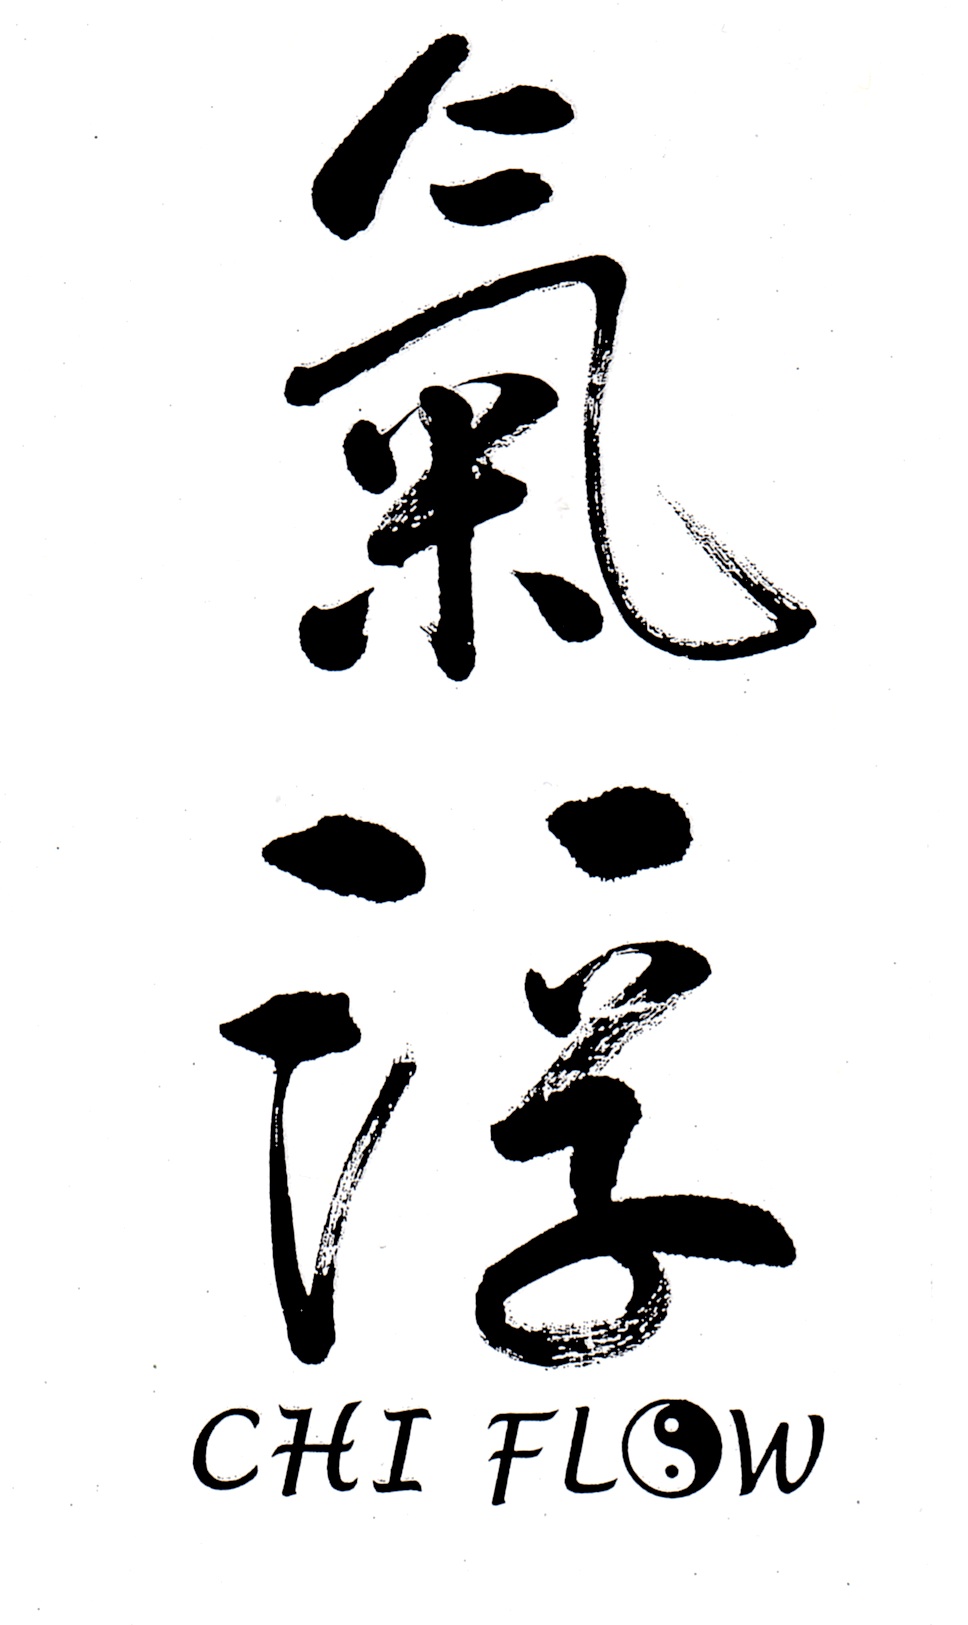 氣
浮
CHI FLOW